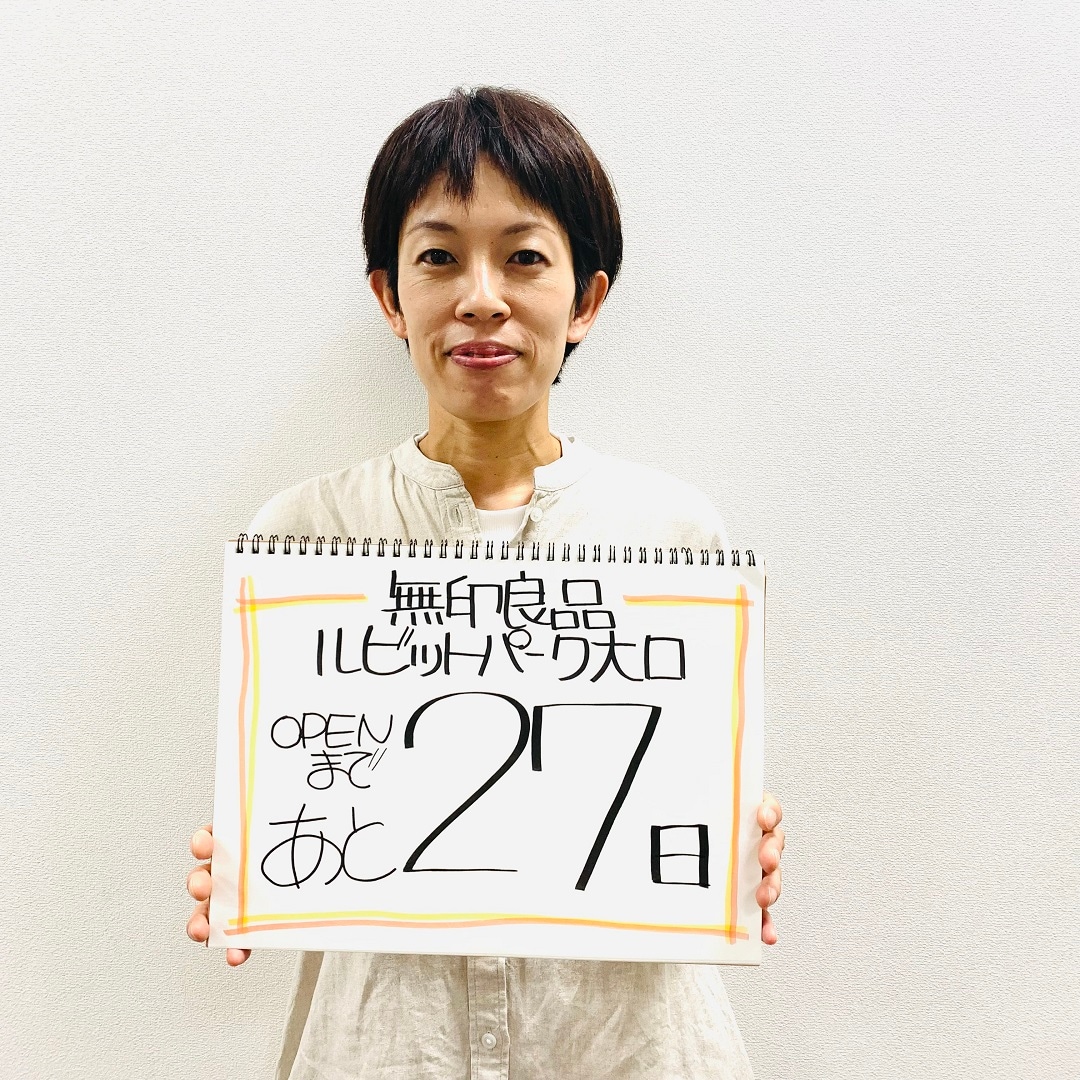 無印良品
ルビットパーク大口
OPEN
まで
あと27日